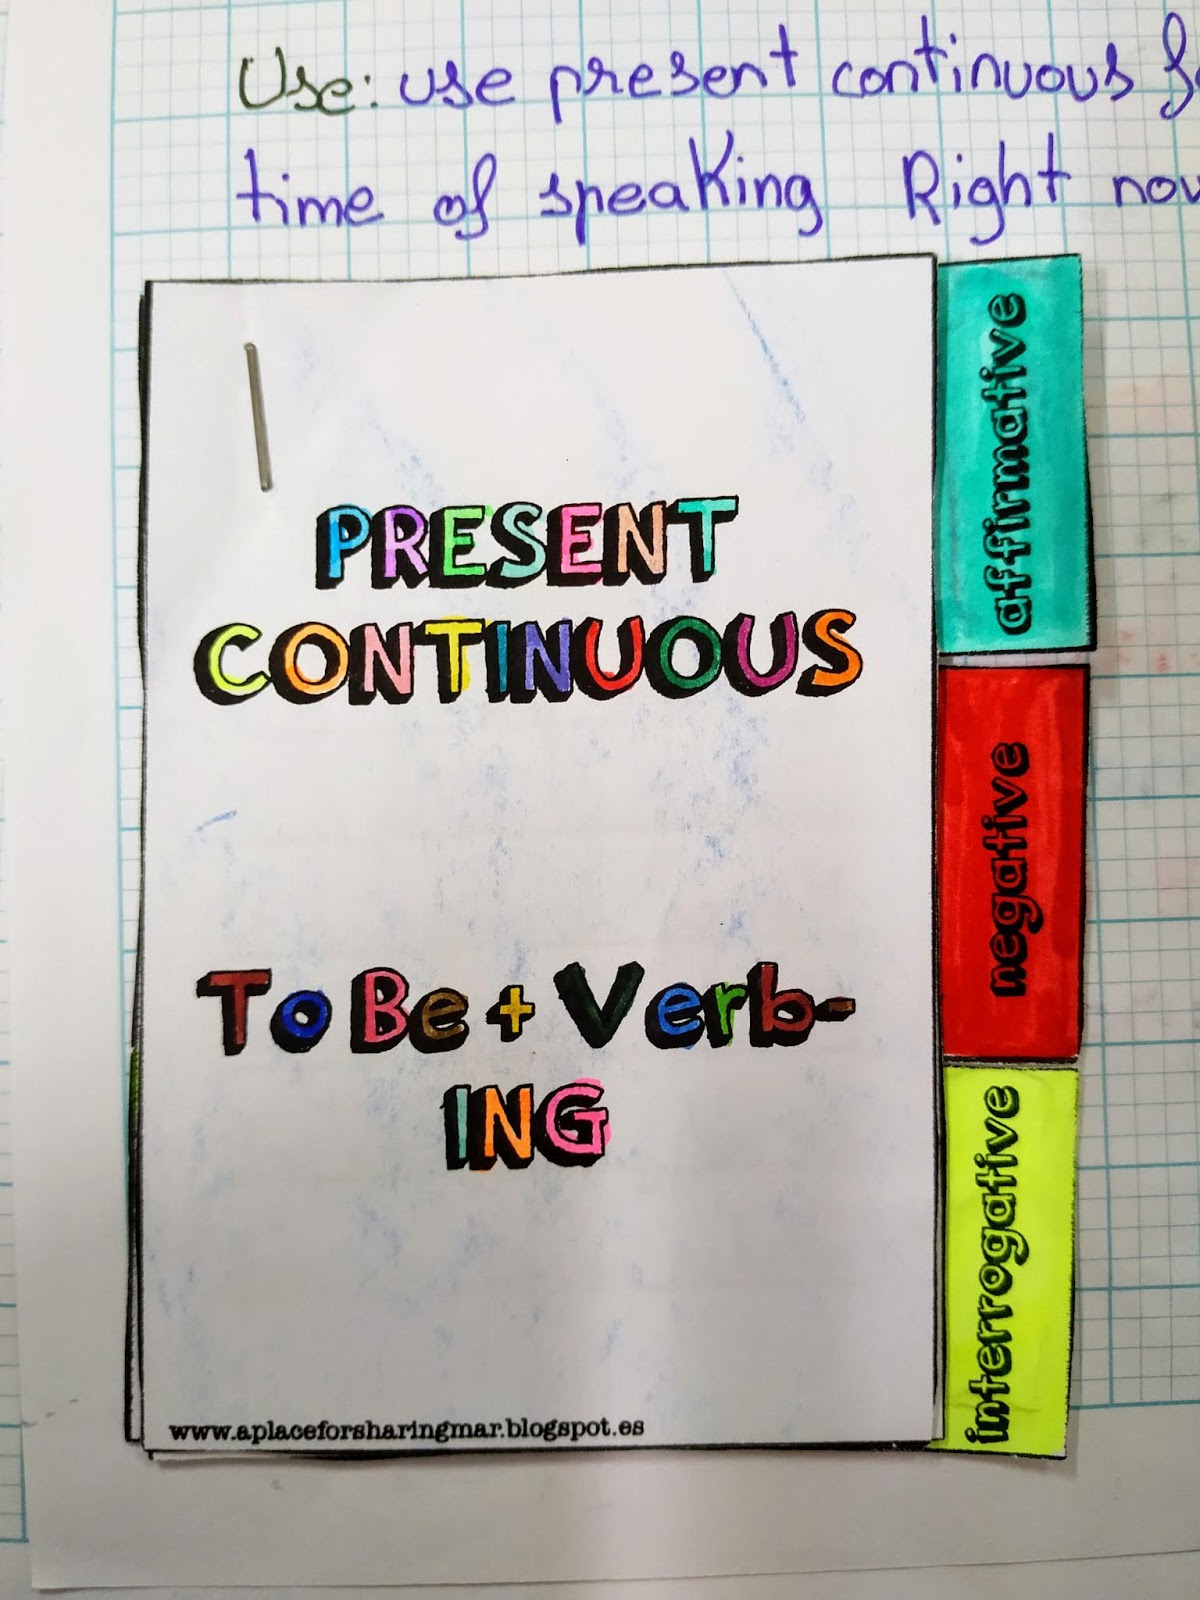 Use: use present continuous
time of speaking Right now
affirmative
PRESENT
CONTINUOUS
negative
To Be + Verb-
ING
interrogative
www.aplaceforsharingmar.blogspot.es